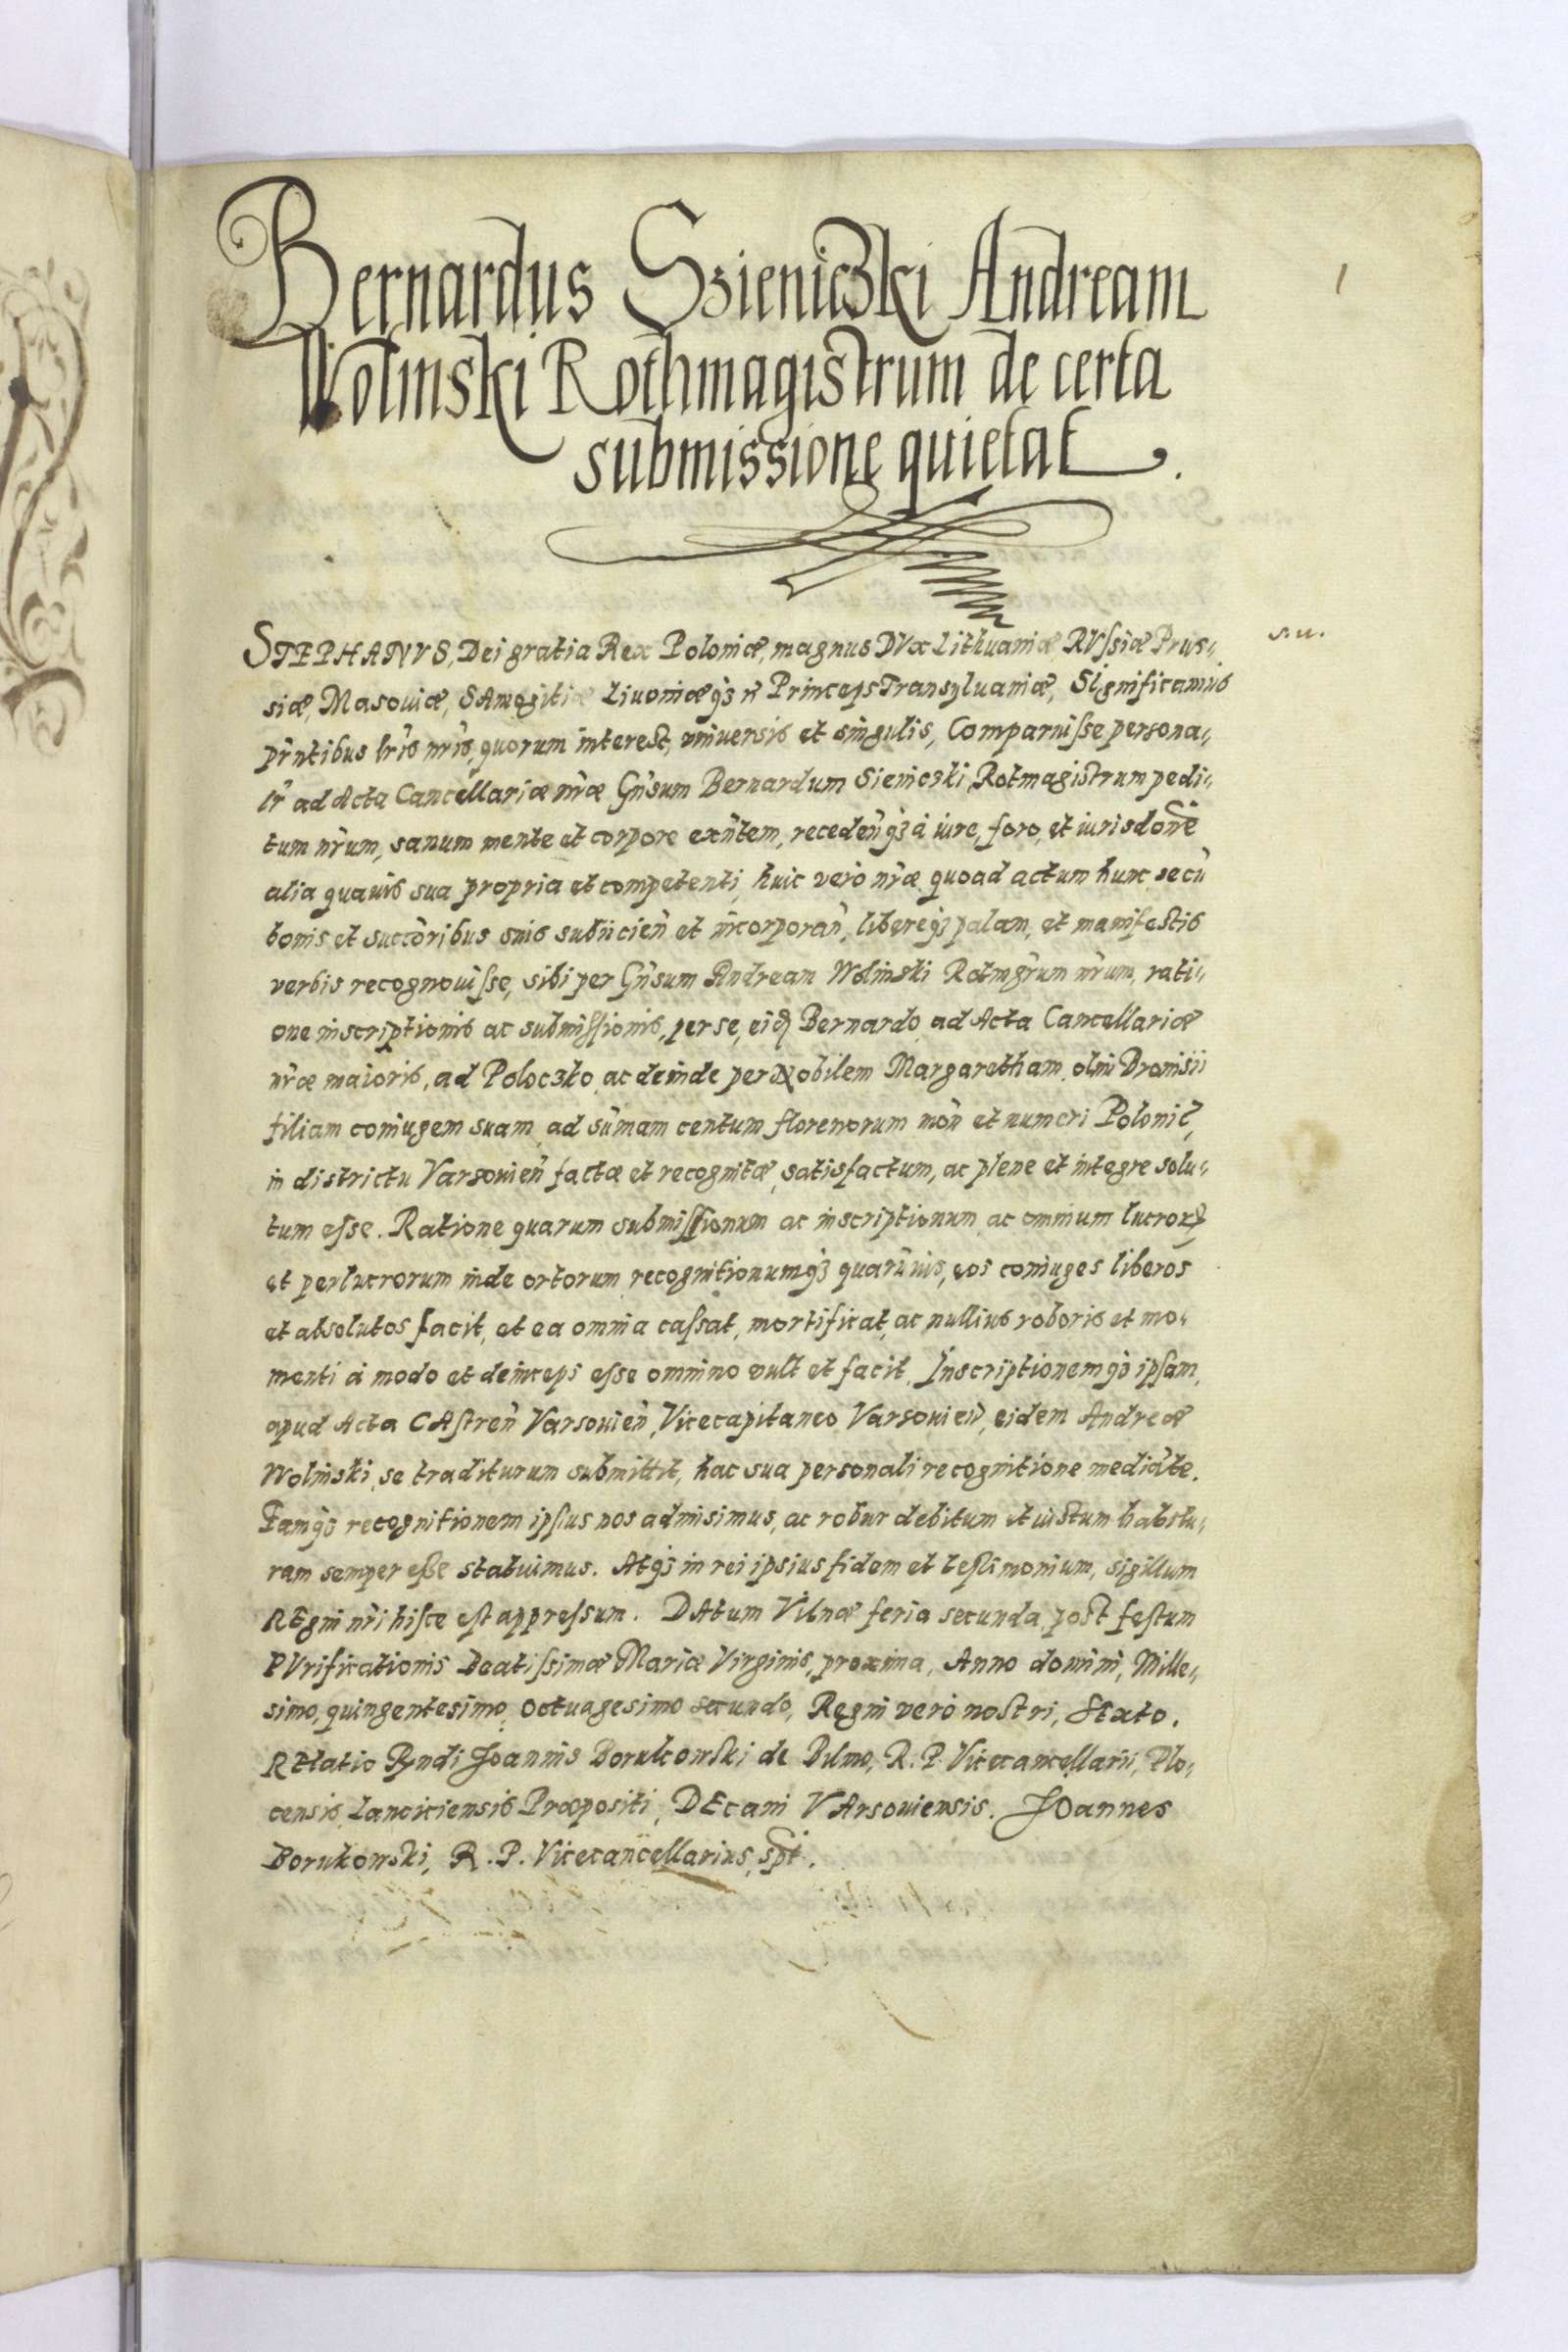 1
Bernardus Szieniczki Andream
Wolinski Rothmagistrum de certa
submissione quietat.
STEPHANVS, Dei gratia Rex Poloniæ, magnus DVx Lithuaniæ, RVssiæ Prus„
s.u.
siæ, Masouiæ, SAmogitiæ Liuoniæqȝ et Princeps Transyluaniæ, Significamus
pr̃ntibus lr̃is nr̃is, quorum interest, vniuersis et singulis, Comparuisse persona„
lr̃ ad Acta Cancellariæ nr̃æ Gn̄sum Bernardum Sieniczki, Rotmagistrum pedi„
tum nr̃um, sanum mente et corpore exn̄tem, recedenqȝ à iure, foro, et iurisdone
alia quauis sua propria et competenti, huic verò nr̃æ quoad actum hunc se cū
bonis et succōribus suis subiicien̄ et incorporan̄, libereqȝ palam, et manifestis
verbis recognouisse, sibi per Gn̄sum Andream Wolinski Rotmgr̃um nr̃um, rati„
one inscriptionis ac submissionis, per se, eidē Bernardo ad Acta Cancellariæ
nr̃æ maioris, ad Poloczko ac deinde per Nobilem Margaretham olim Dronisii
filiam coniugem suam ad sum̄am centum florenorum mon̄ et numeri Polonic̄,
in districtu Varsouien̄ factæ et recognitæ, satisfactum, ac plene et integre solu„
tum esse. Ratione quarum submissionum ac inscriptionum ac omnium lucroꝝ
et perlucrorum inde ortorum recognitionumqȝ quarūuis, eos coniuges liberos
et absolutos facit, et ea omnia cassat, mortificat, ac nullius roboris et mo„
menti à modo et deinceps esse omnino vult et facit. Inscriptionemqȝ ipsam
apud Acta CAstren̄ Varsouien̄, Vicecapitaneo Varsouien̄, eidem Andreæ
Wolinski, se traditurum submittit, hac sua personali recognitione mediāte.
Eamqȝ recognitionem ipsius nos admisimus, ac robur debitum et iustum habitu„
ram semper esse statuimus. Atqȝ in rei ipsius fidem et testimonium, sigillum
REgni nr̃i hisce est appressum. DAtum Vilnæ feria secunda post festum
PVrificationis Beatissimæ Mariæ Virginis, proxima, Anno domini, Mille„
simo, quingentesimo, Octuagesimo secundo, Regni verò nostri, Sexto.
RElatio Rn̄di Joannis Borukowski de Bilino, R. P. Vicecancellarii, Plo„
censis Lanciciensis Præpositi, DEcani VArsouiensis. JOannes
Borukowski, R. P. Vicecancellarius, sp̄t.